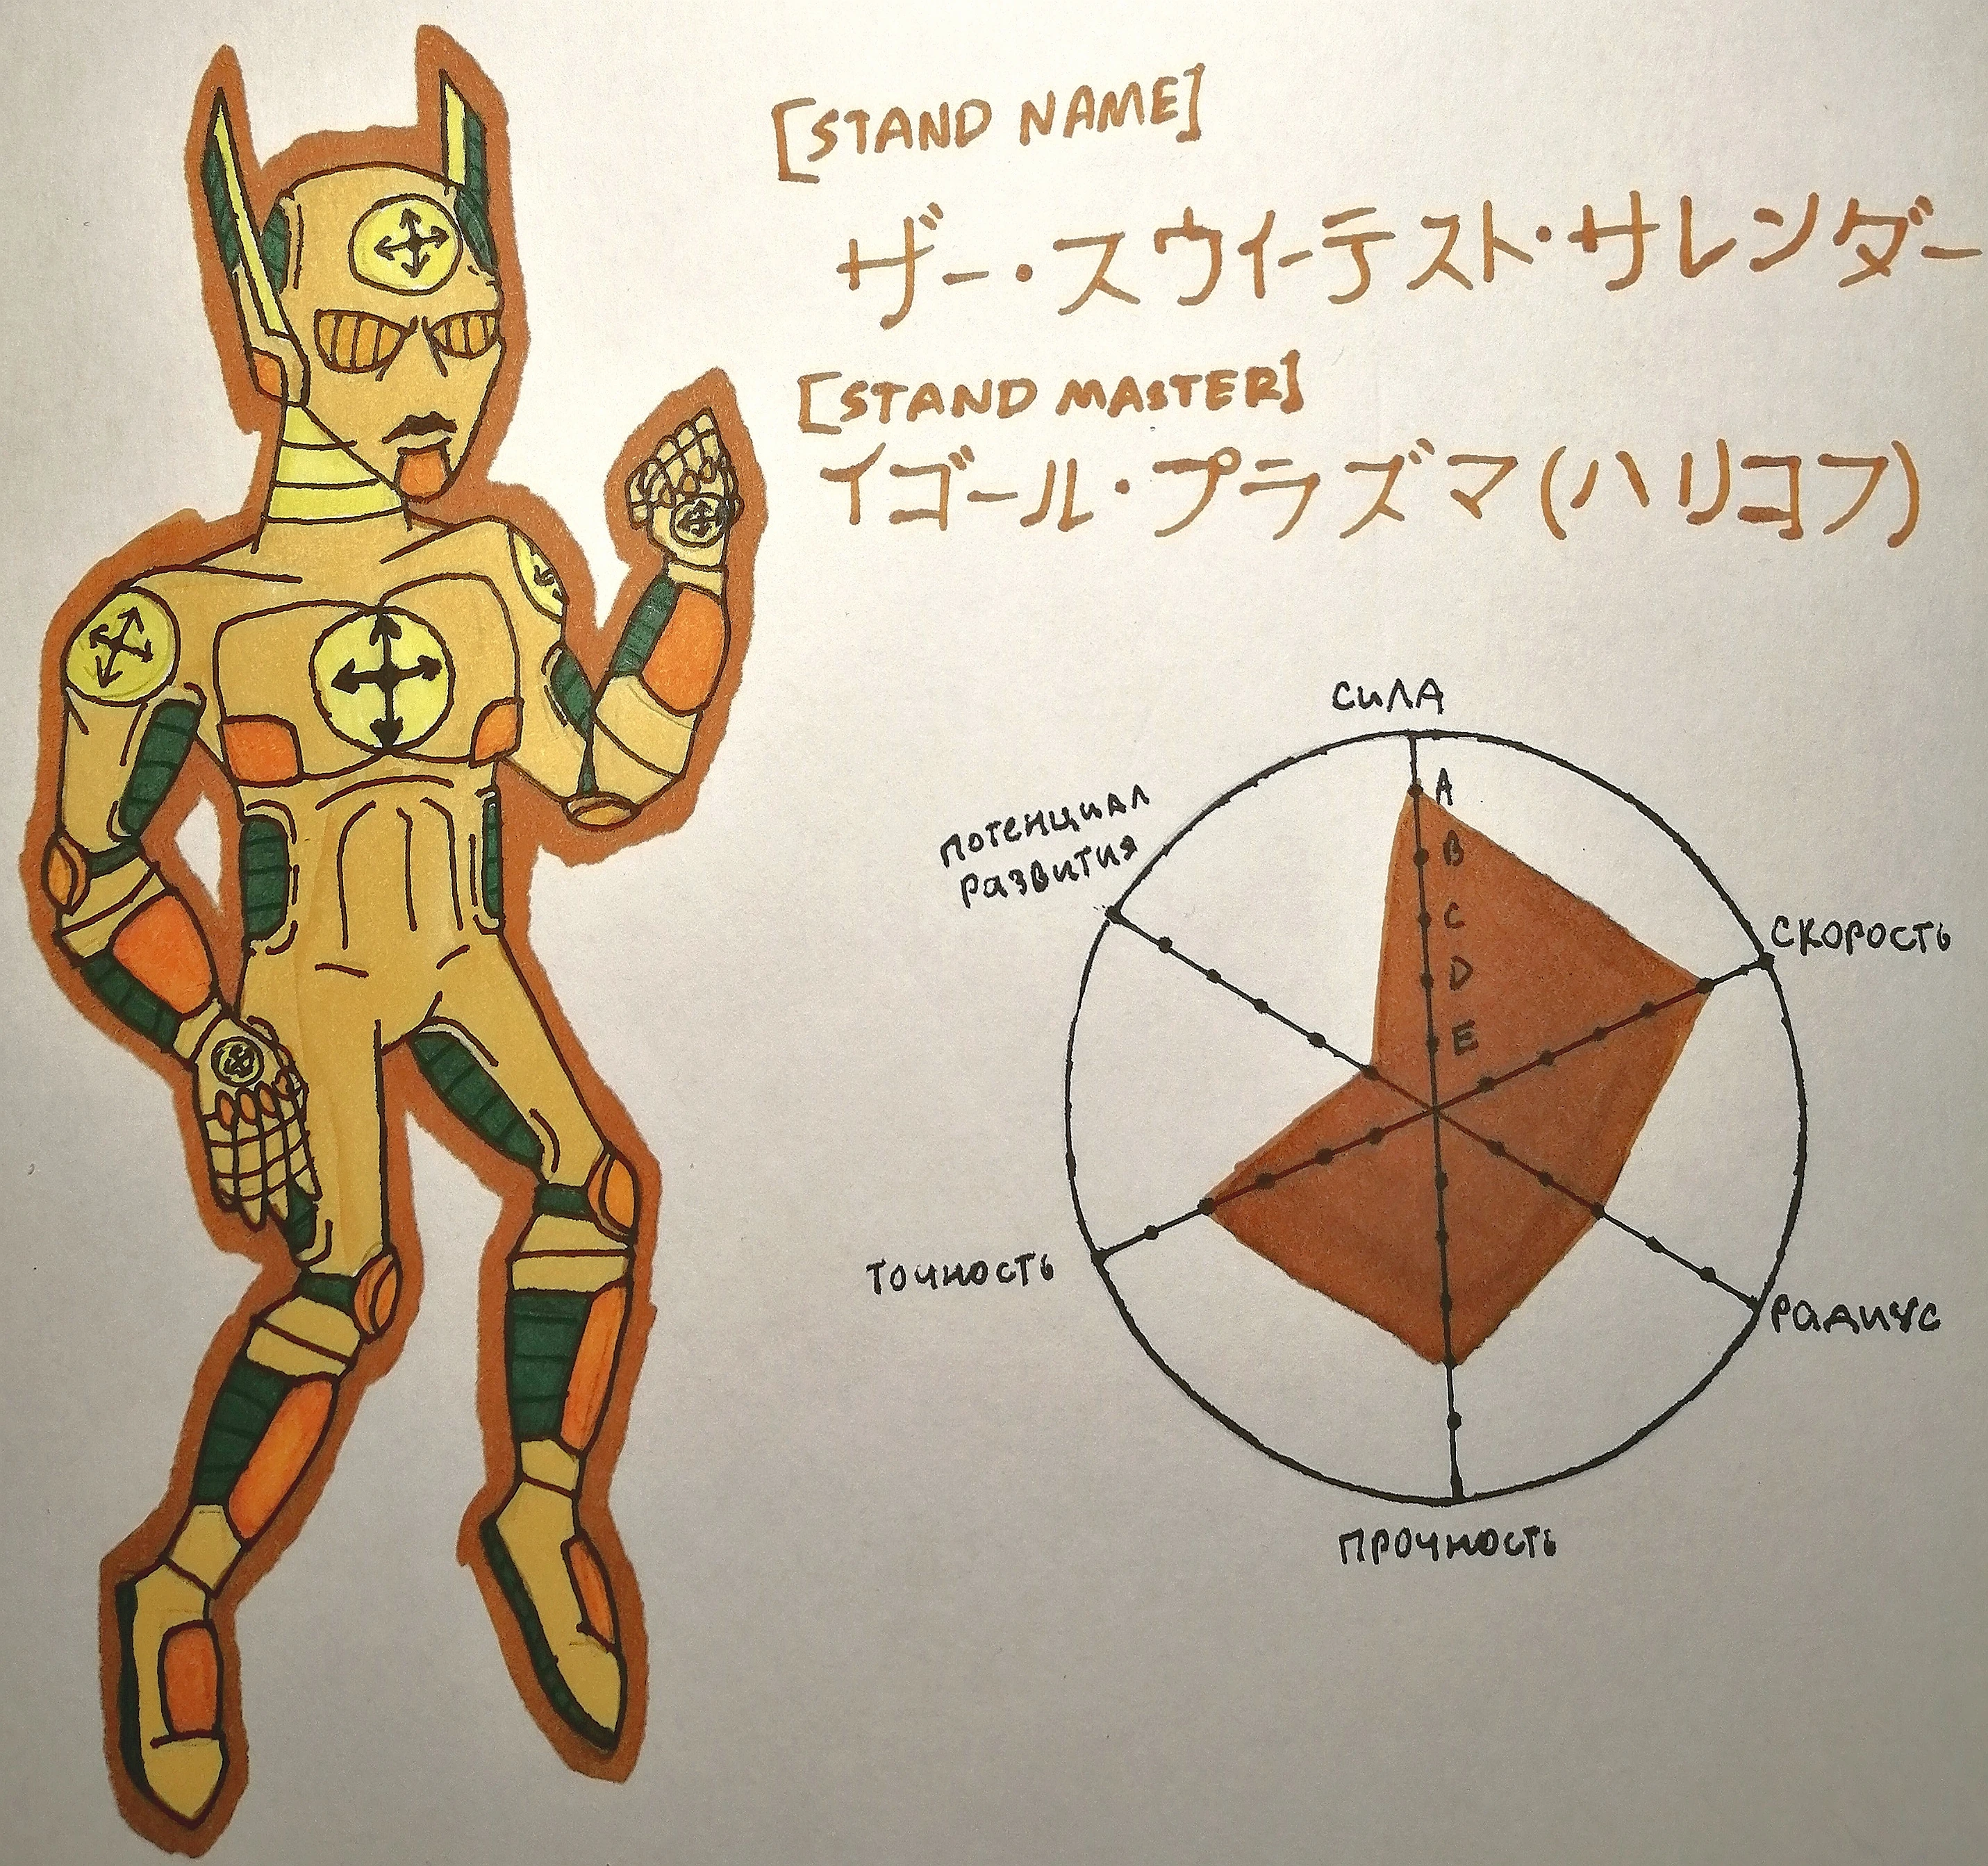 [STAND NAME]
ザー・スウィーテスト・サレンダー
[STAND MASTER]
イゴール・プラズマ(ハリコフ)
СИЛА
A
B
C
D
E
ПОТЕНЦИАЛ
РАЗВИТИЯ
СКОРОСТЬ
ТОЧНОСТЬ
РАДИУС
ПРОЧНОСТЬ